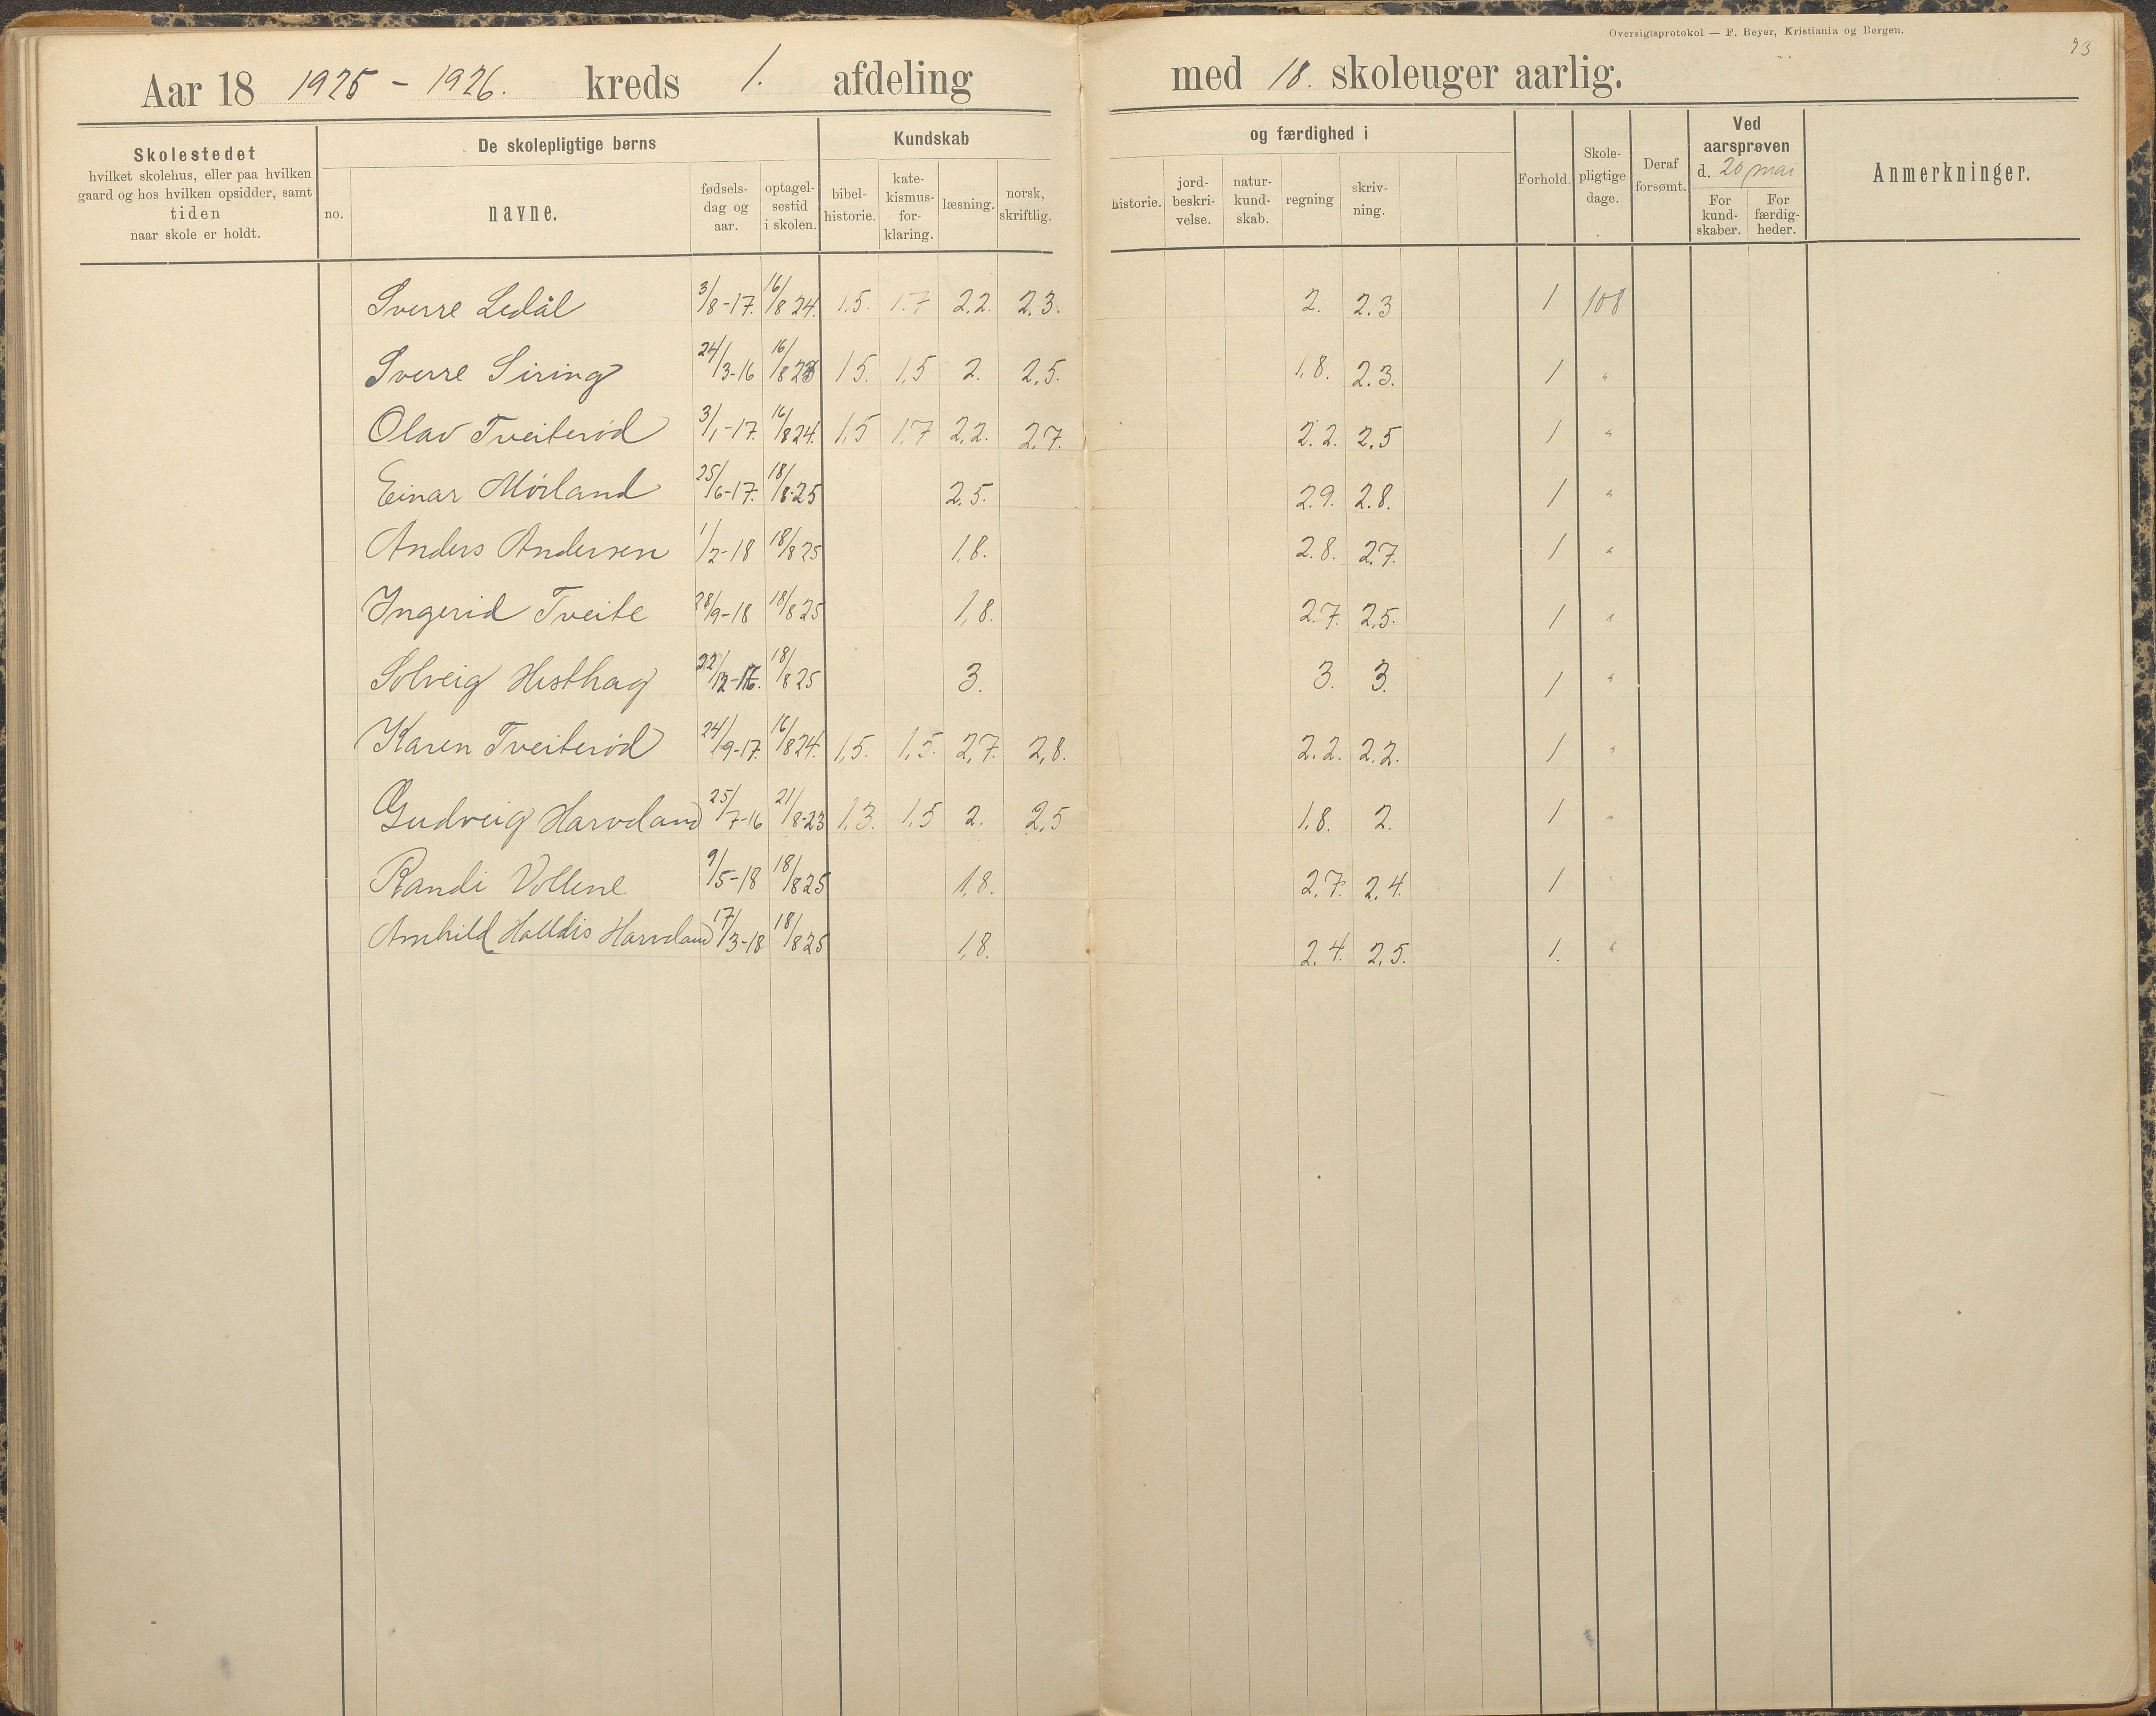 Oversigtsprotokol — F. Beyer, Kristiania og Bergen.
93
Aar 18 1925 - 1926. kreds 1. afdeling med 18. skoleuger aarlig.
Skolestedet
hvilket skolehus, eller paa hvilken
gaard og hos hvilken opsidder, samt
tiden
naar skole er holdt.
De skolepligtige børns
no.
navne.
fødsels-
dag og
aar.
optagel-
sestid
i skolen.
Kundskab
bibel-
historie.
kate-
kismus-
for-
klaring.
læsning.
norsk,
skriftlig.
og færdighed i
historie.
jord-
beskri-
velse.
natur-
kund-
skab.
regning
skriv-
ning.
Forhold.
Skole-
pligtige
dage.
Deraf
forsømt.
Ved
aarsprøven
d. 20 mai
For
kund-
skaber.
For
færdig-
heder.
Anmerkninger.
Sverre Ledål 3/8-17. 16/8 24. 1.5. 1.7 2.2. 2.3. 2. 2.3 1 108
Sverre Siring 24/3-16 16/8 23 1.5. 1,5 2. 2,5. 1,8. 2.3. 1 "
Olav Tveiterød 3/1-17. 16/8 24. 1,5 1.7 2,2. 2,7. 2.2. 2.5 1 "
Einar Mørland 25/6-17. 18/8-25 2.5. 2.9. 2.8. 1 "
Anders Andersen 1/2-18 18/8 25 1.8. 2.8. 2.7. 1 "
Ingerid Tveite 28/9-18 18/8 25 1,8. 2.7. 2,5. 1 "
Solveig Hesthag 22/12-16. 18/8 25 3. 3. 3. 1 "
Karen Tveiterød 24/9-17. 16/8 24. 1,5. 1,5. 2,7. 2,8. 2.2. 2.2. 1 "
Gudveig Harveland 25/7-16 21/8-23 1.3. 1,5 2. 2,5 1.8. 2. 1 "
Randi Vollene 9/5-18 18/8 25 1,8. 2.7. 2.4. 1 "
Arnhild Halldis Harveland 17/3-18 18/8 25 1,8. 2.4. 2.5. 1. "